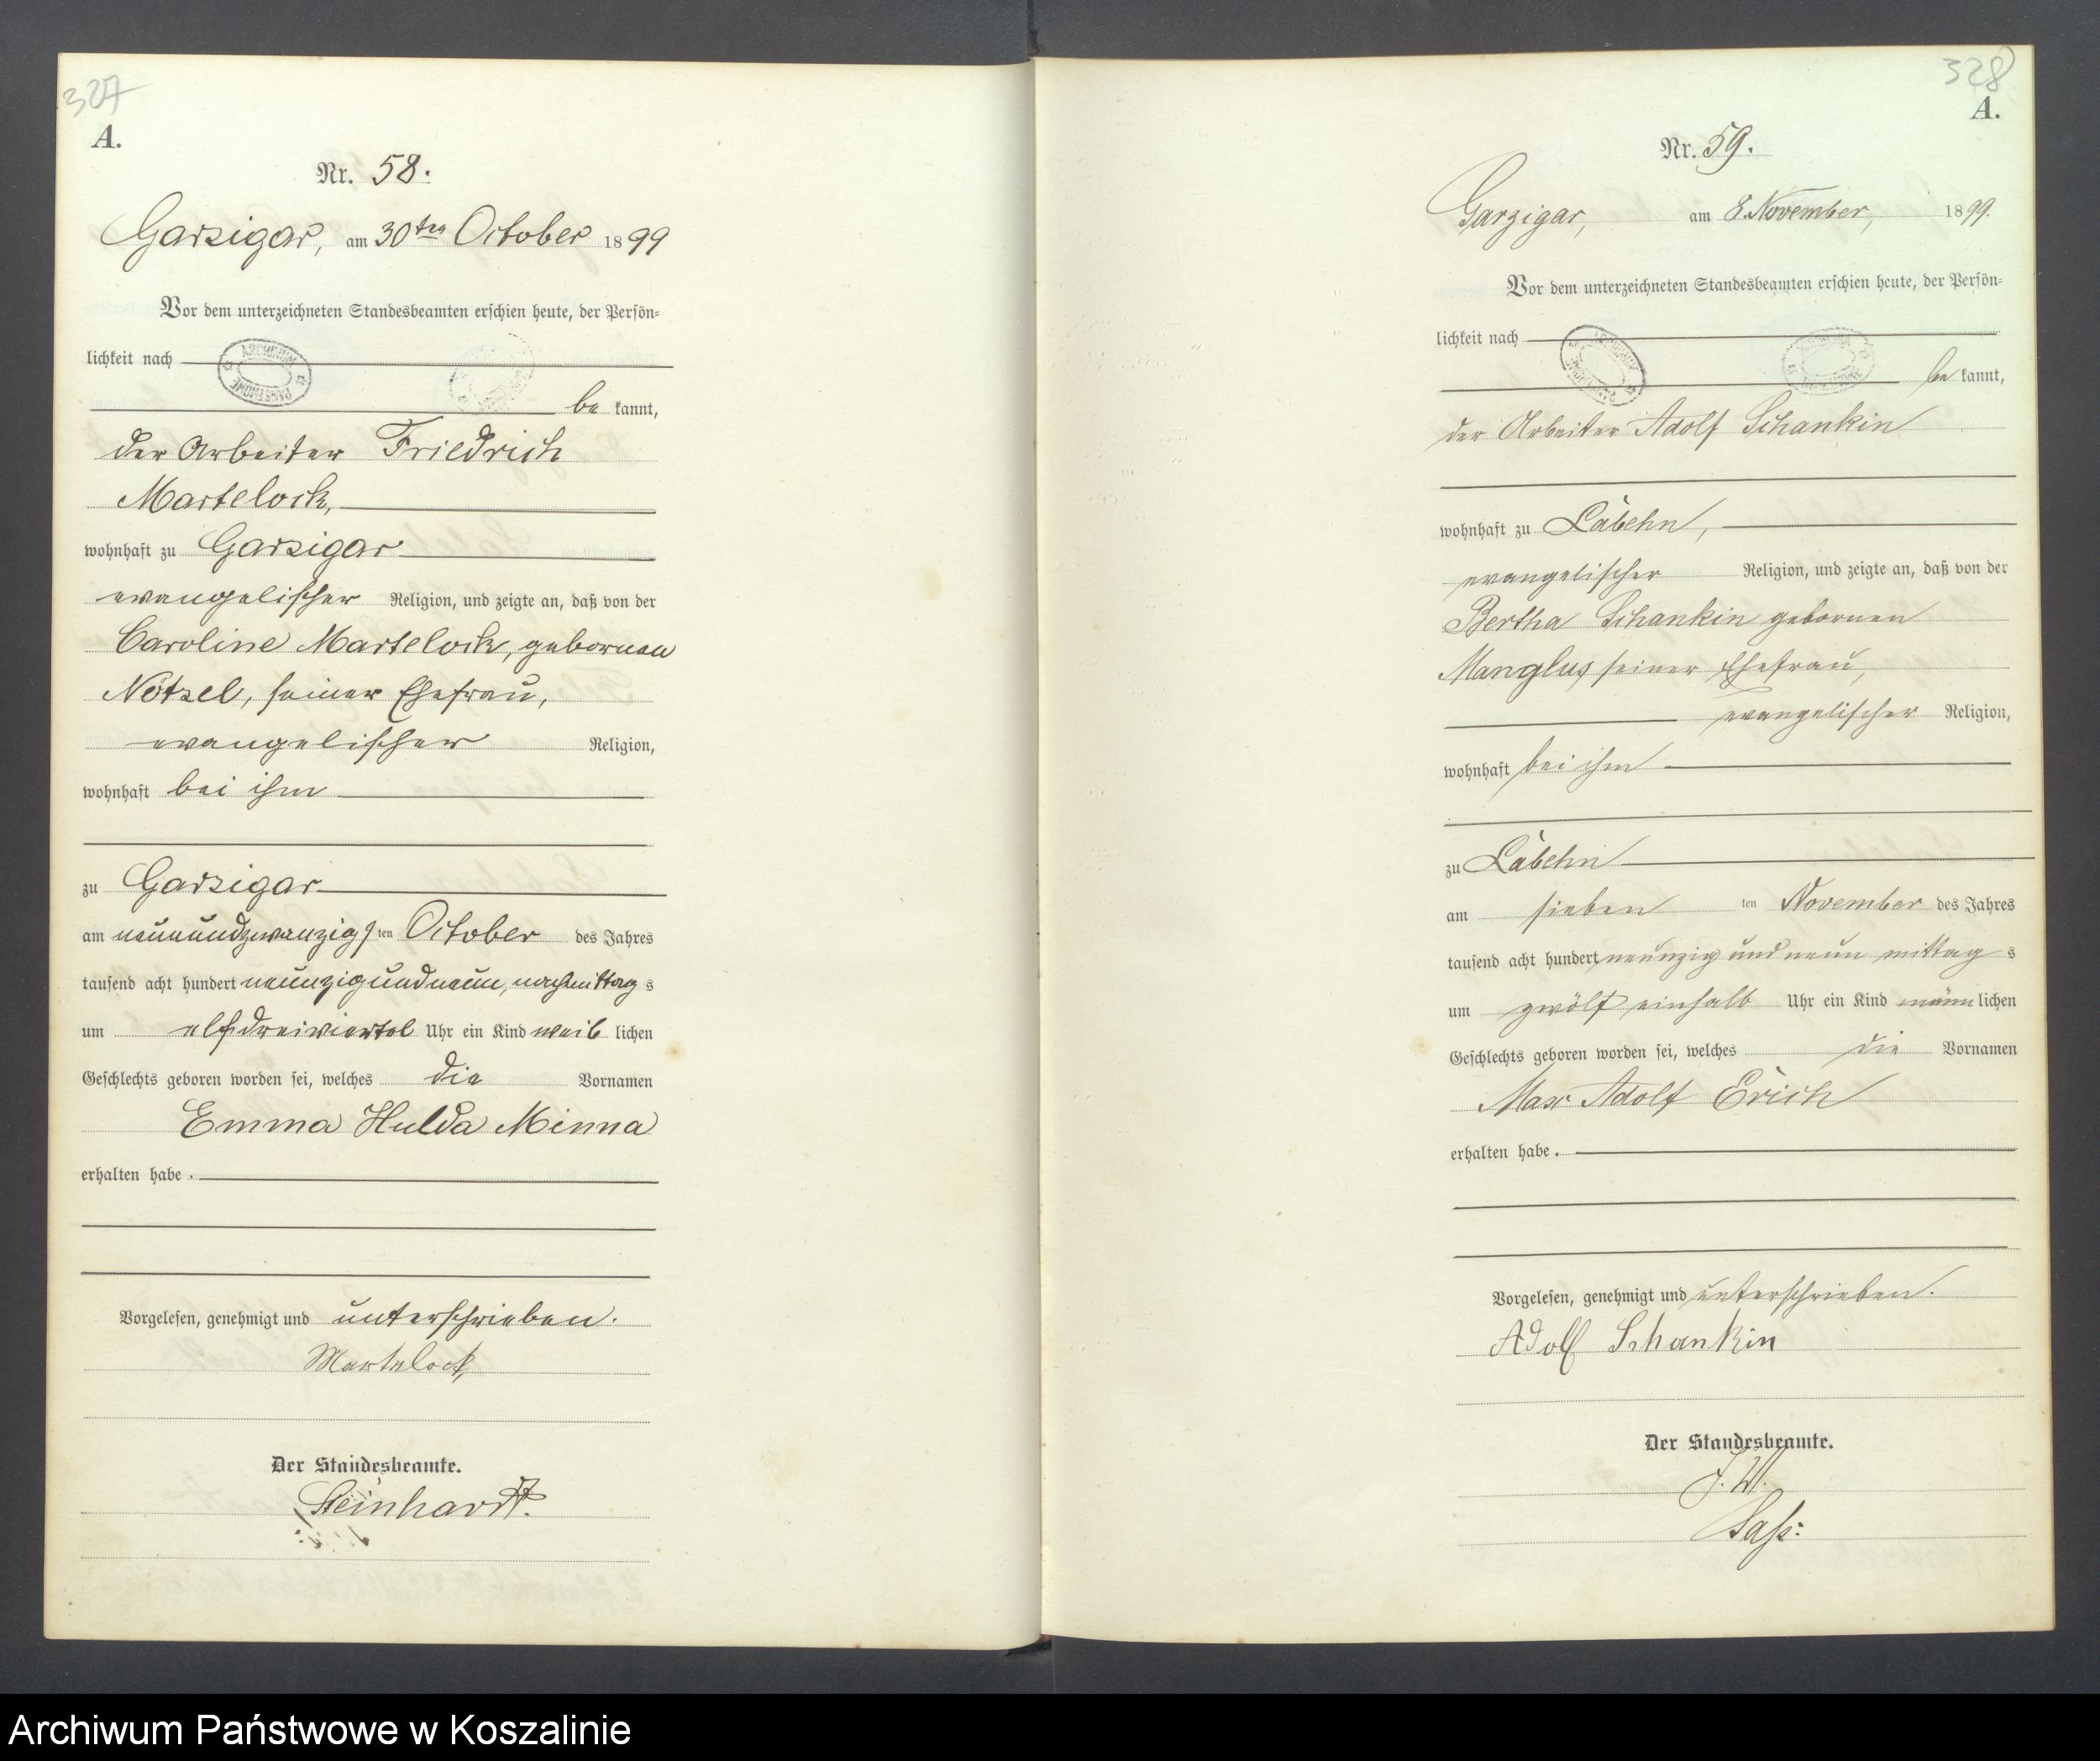 327
A.
Nr. 58.
Garzigar, am 30ten October 1899
Vor dem unterzeichneten Standesbeamten erschien heute, der Persön-
lichkeit nach
be kannt,
der Arbeiter Friedrich
Martelock,
wohnhaft zu Garzigar
evangelischer Religion, und zeigte an, daß von der
Caroline Martelock, gebornen
Nötzel, seiner Ehefrau,
evangelischer Religion,
wohnhaft bei ihm
zu Garzigar
am neunundzwanzigsten October des Jahres
tausend acht hundert neunzig und neun, nachmittag s
um elfdreiviertel Uhr ein Kind weib lichen
Geschlechts geboren worden sei, welches die Vornamen
Emma Hulda Minna
erhalten habe.
Vorgelesen, genehmigt und unterschrieben.
Martelock
Der Standesbeamte.
Steinhardt.
328
A.
Nr. 59.
Garzigar, am 8. November, 1899.
Vor dem unterzeichneten Standesbeamten erschien heute, der Persön-
lichkeit nach
be kannt,
der Arbeiter Adolf Schankin
wohnhaft zu Labehn,
evangelischer Religion, und zeigte an, daß von der
Bertha Schankin gebornen
Manglus, seiner Ehefrau,
evangelischer Religion,
wohnhaft bei ihm
zu Labehn
am sieben ten November des Jahres
tausend acht hundert neunzig und neun mittag s
um zwölf einhalb Uhr ein Kind männ lichen
Geschlechts geboren worden sei, welches die Vornamen
Max Adolf Erich
erhalten habe.
Vorgelesen, genehmigt und unterschrieben.
Adolf Schankin
Der Standesbeamte.
J. V.
Saß.
Archiwum Państwowe w Koszalinie